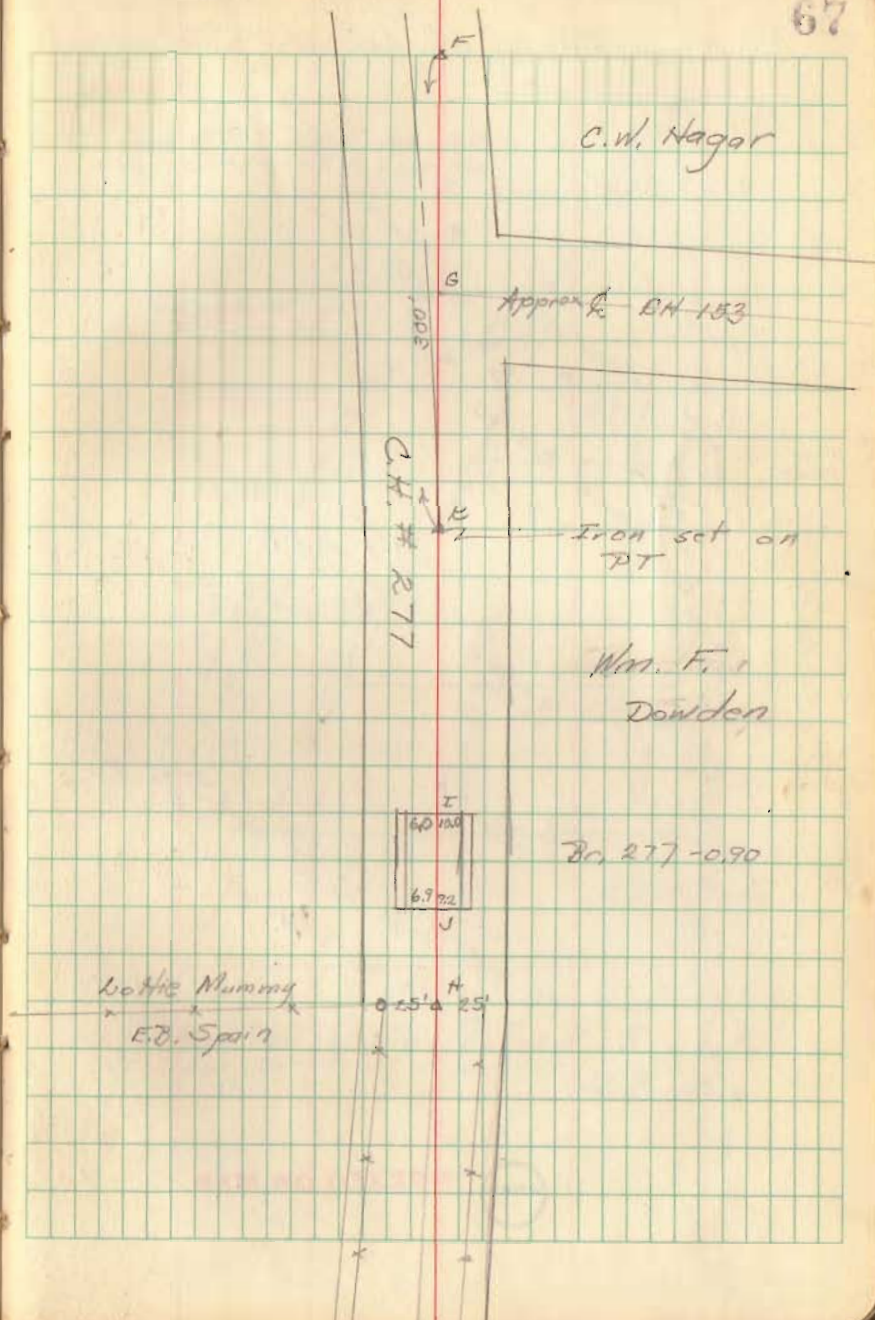 67
F
C.W. Hagar
G
Approx ℄ CH 153
300'
C.H. # 277
K
Iron set on
PT
Wm. F.
Dowden
I
6.0 10.0
Br. 277 -0.90
6.9 7.2
J
Lottie Mummy
H
25' 25'
E.B. Spain